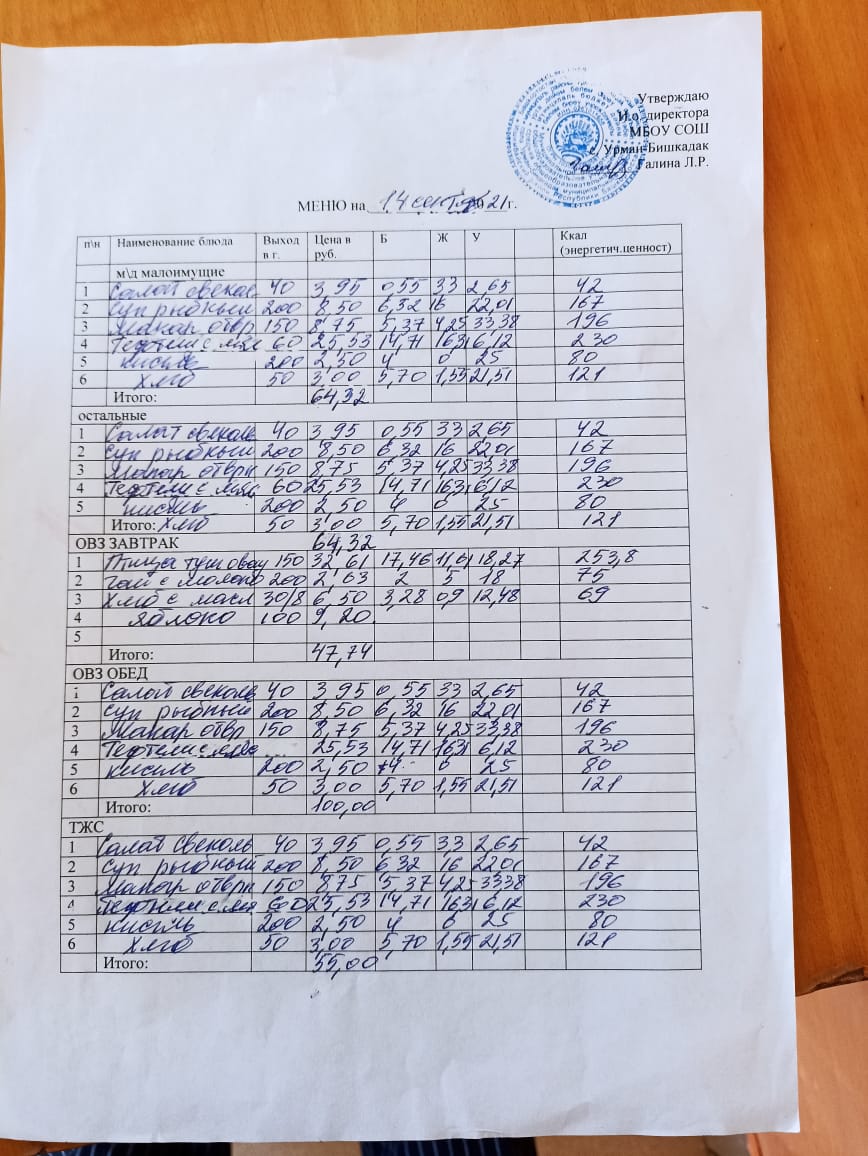 Утверждаю
И.о. директора
МБОУ СОШ
с. Урман-Бишкадак
Галина Л.Р.
МЕНЮ на 14 сентя 2021г.
п\н Наименование блюда Выход в г. Цена в руб. Б Ж У Ккал (энергетич.ценност)
м\д малоимущие
1 Салат свекол 40 3,95 0,55 33 2,65 42
2 Суп рыбный 200 8,50 6,32 16 22,01 167
3 Макар отвр 150 8,75 5,37 4,25 33,38 196
4 Тефтели с мяс 60 25,53 14,71 163 6,12 230
5 кисель 200 2,50 4 0 25 80
6 Хлеб 50 3,00 5,70 1,55 21,51 121
Итого: 64,32
остальные
1 Салат свеколь 40 3 95 0,55 33 2,65 42
2 Суп рыбный 200 8,50 6,32 16 2201 167
3 Макар отврн 150 8,75 5,37 4,25 33,38 196
4 Тефтели с мяс 60 25,53 14,71 163 6,12 230
5 кисель 200 2,50 4 0 25 80
Итого: Хлеб 50 3,00 5,70 1,55 21,51 121
ОВЗ ЗАВТРАК 64,32
1 Птица тушовау 150 32,61 17,46 11,61 18,27 253,8
2 Чай с молоко 200 2,63 2 5 18 75
3 Хлеб с масл 30/8 6 50 3,28 0,9 12,48 69
4 яблоко 100 9,20
5
Итого: 47,74
ОВЗ ОБЕД
1 Салат свеколь 40 3 95 0,55 33 2,65 42
2 Суп рыбный 200 8,50 6,32 16 2201 167
3 Макар отвр 150 8,75 5,37 4,25 33,38 196
4 Тефтели с мяс 25,53 14,71 163 6,12 230
5 кисель 200 2,50 4 0 25 80
6 Хлеб 50 3,00 5,70 1,55 21,51 121
Итого: 100,00
ТЖС
1 Салат свеколь 40 3,95 0,55 33 2,65 42
2 Суп рыбный 200 8,50 6 32 16 2201 167
3 Макар отврн 150 875 5,37 4,25 3338 196
4 Тефтели с мя 60 25,53 14,71 163 6,12 230
5 кисель 200 2,50 4 0 25 80
6 Хлеб 50 3,00 5,70 1,55 21,51 121
Итого: 55,00